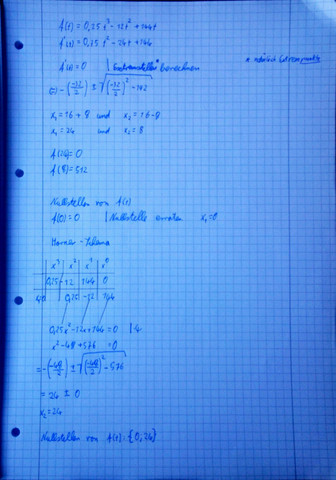 A(t) = 0,25 t³ - 12t² + 144t
A'(t) = 0,75 t² - 24t + 144
A'(t) = 0 | Extremstellen* berechnen
* nämlich Extrempunkte
(=) - (-32/2) ± √(-32/2)² - 192
x₁ = 16 + 8 und x₂ = 16 - 8
x₁ = 24 und x₂ = 8
A(24) = 0
A(8) = 512
Nullstellen von A(t)
A(0) = 0 | Nullstelle erraten x₁ = 0
Horner-Schema
x³ x² x¹ x⁰
0,25 -12 144 0
x₁0 0,25 -12 144
0,25x² - 12x + 144 = 0 | ·4
x² - 48 + 576 = 0
= -(-48/2) ± √(-48/2)² - 576
= 24 ± 0
x₂ = 24
Nullstellen von A(t): {0; 24}